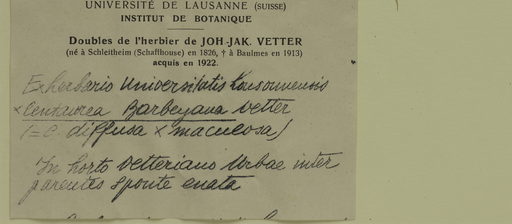 UNIVERSITÉ DE LAUSANNE (SUISSE)
INSTITUT DE BOTANIQUE
Doubles de l'herbier de JOH.-JAK. VETTER
(né à Schleitheim (Schaffhouse) en 1826, † à Baulmes en 1913)
acquis en 1922.
Ex herbario Universitatis Lousonnensis
× Centaurea Barbeyana Vetter
(= C. diffusa × maculosa)
In horto Vetteriano Urbae inter
parentes sponte enata